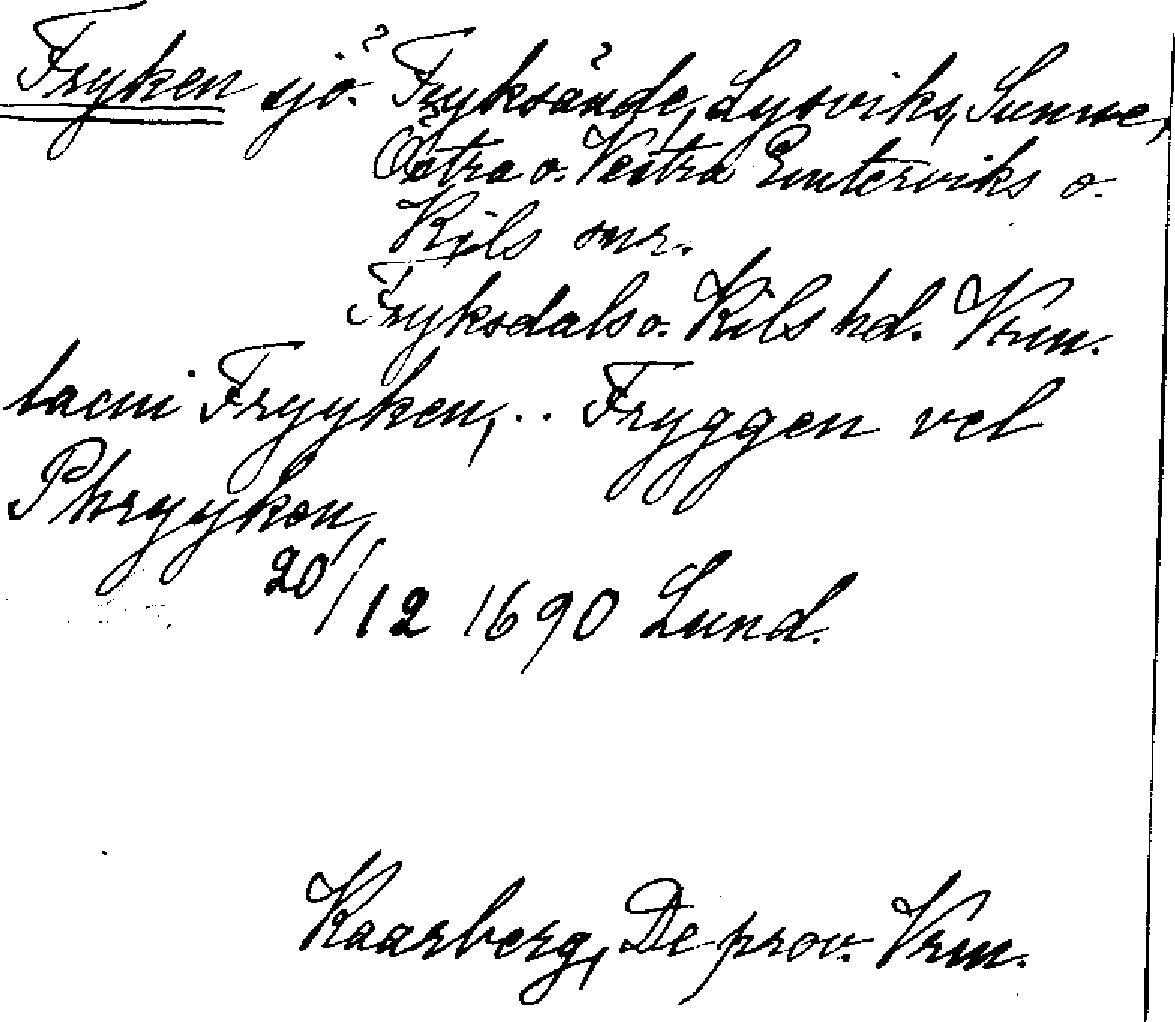 Fryken sjö. Fryksände, Lysviks, Sunne,
Östra o. Vestra Emterviks o.
Kils snr.
Fryksdals o. Kils hd. Vrm.
lacui Fryyken, .. Fryggen vel
Phryyken,
20/12 1690 Lund.
Kaarberg, De prov. Vrm.